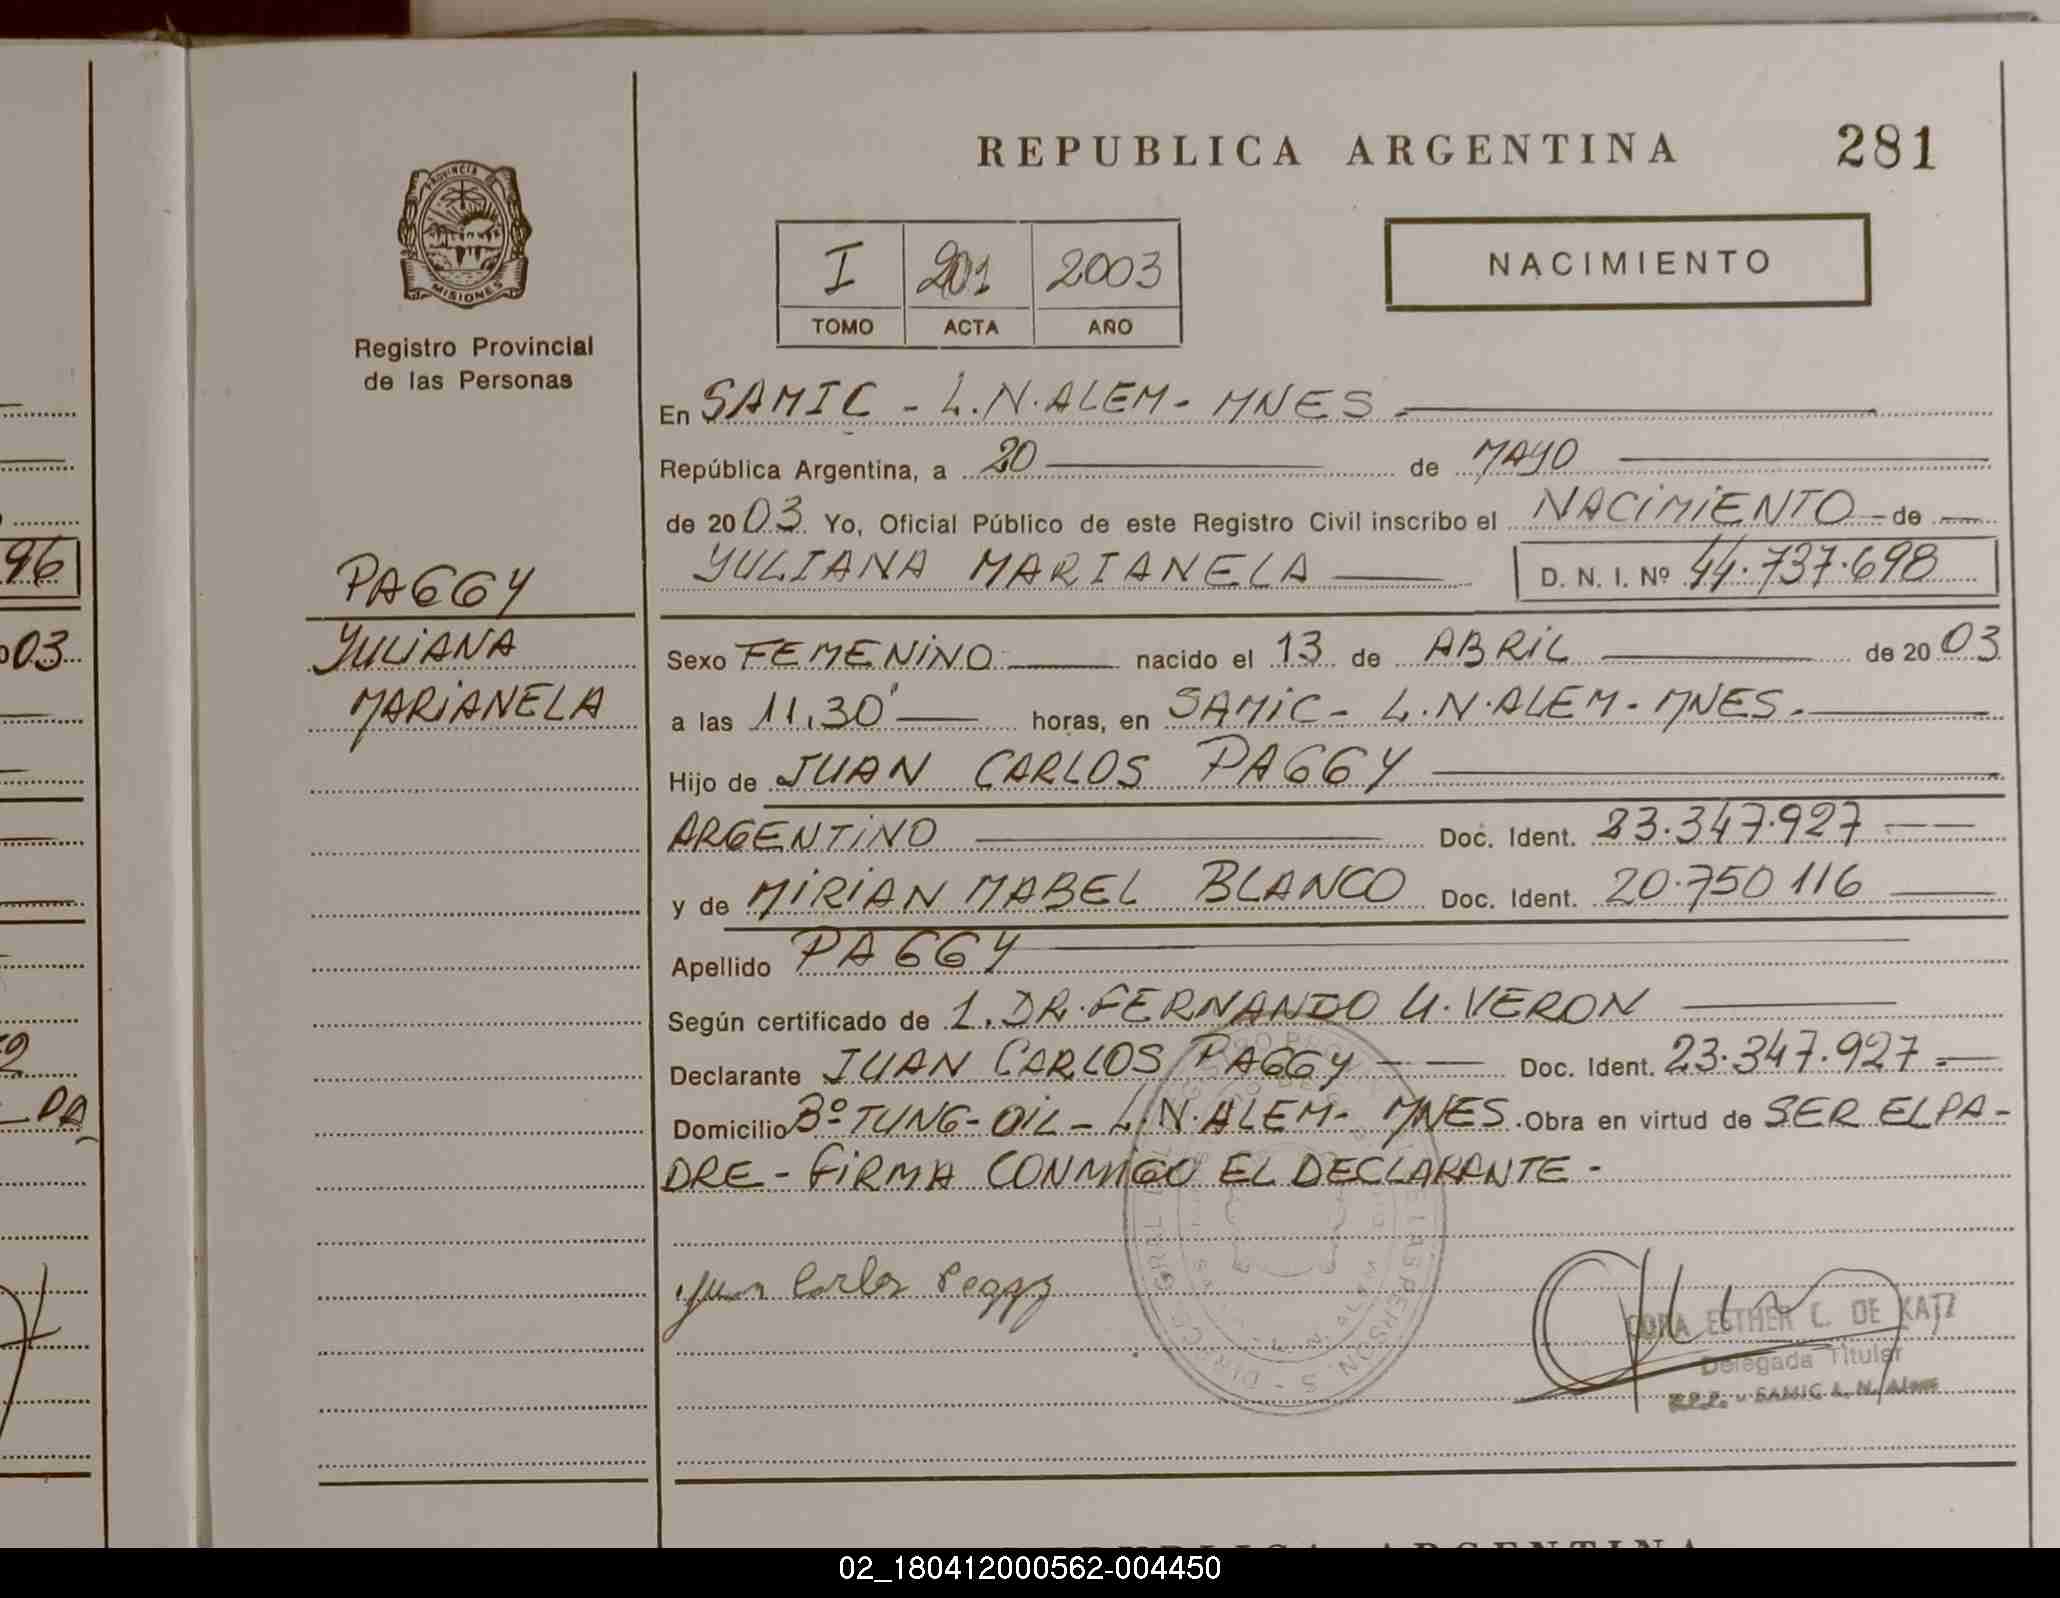 REPUBLICA ARGENTINA 281
PROVINCIA DE
MISIONES
Registro Provincial
de las Personas
I 201 2003
TOMO ACTA AÑO
NACIMIENTO
En SAMIC - L.N.ALEM - MNES -
República Argentina, a 20 de MAYO
de 2003 Yo, Oficial Público de este Registro Civil inscribo el NACIMIENTO - de
YULIANA MARIANELA D. N. I. Nº 44.737.698
PAGGY
YULIANA
MARIANELA
Sexo FEMENINO nacido el 13 de ABRIL de 2003
a las 11,30' horas, en SAMIC - L.N.ALEM - MNES.
Hijo de JUAN CARLOS PAGGY
ARGENTINO Doc. Ident. 23.347.927
y de MIRIAN MABEL BLANCO Doc. Ident. 20.750 116
Apellido PAGGY
Según certificado de 1. DR. FERNANDO U. VERON
Declarante JUAN CARLOS PAGGY Doc. Ident. 23.347.927
Domicilio Bº TUNG-OIL - L.N.ALEM - MNES. Obra en virtud de SER EL PA-
DRE - FIRMA CONMIGO EL DECLARANTE -
Juan Carlos Paggy
CORA ESTHER C. DE KATZ
Delegada Titular
SAMIC L. N. Alem
96
03
02_180412000562-004450